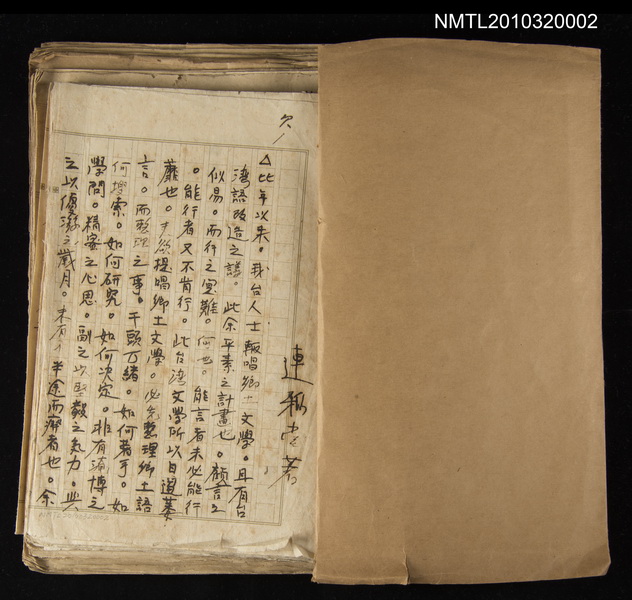 NMTL2010320002
欠
連雅堂著
△比年以來。我台人士輙唱鄉土文學。且有台
湾語改造之議。此余平素之計畫也。顧言之
似易。而行之寔難。何也。能言者未必能行
。能行者又不肯行。此台湾文學所以日趨萎
靡也。夫欲提唱鄉土文學。必先整理鄉土語
言。而整理之事。千頭万緒。如何着手。如
何搜索。如何研究。如何決定。非有淹博之
學問。精密之心思。副之以堅毅之氣力。與
之以優游之歲月。未有不半途而廢者也。余